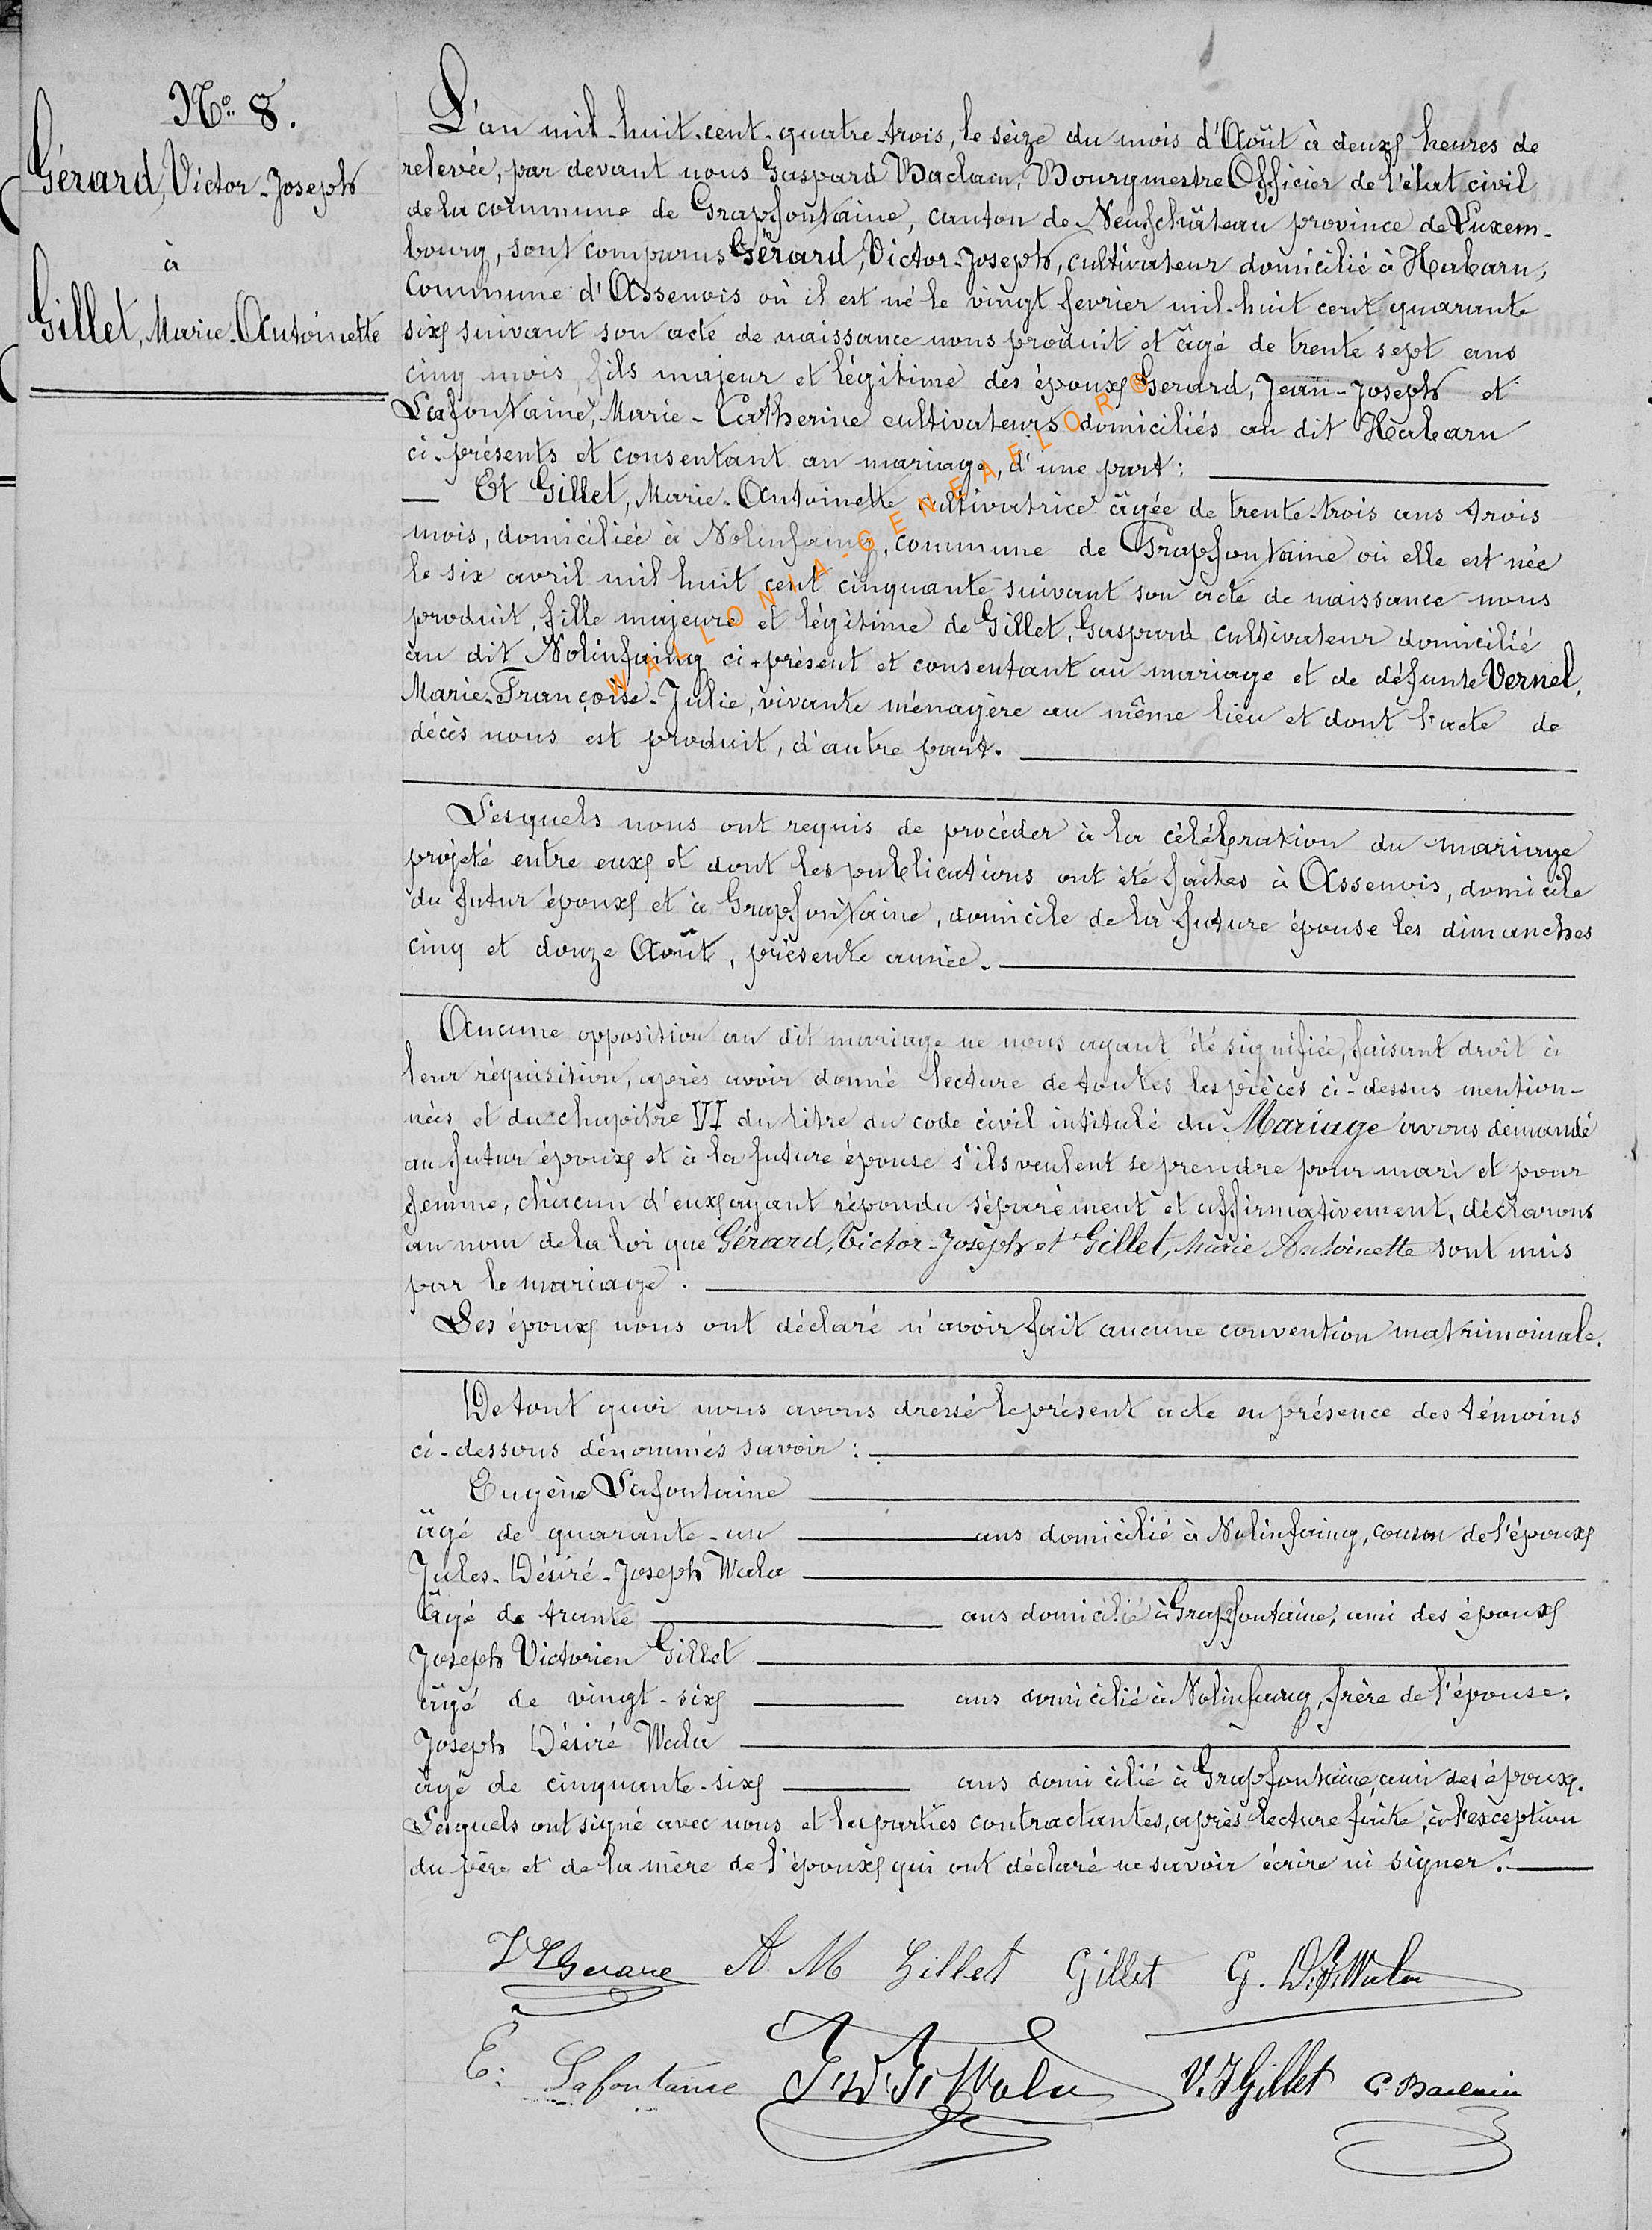 N° 8.
Gérard, Victor-Joseph
à
Gillet, Marie-Antoinette
L'an mil-huit-cent-quatre-trois, le seize du mois d'Août à deux heures de
relevée, par devant nous Gaspard Baclain, Bourgmestre Officier de l'état civil
de la commune de Grapfontaine, canton de Neufchâteau province de Luxem-
bourg, sont comparus Gérard, Victor-Joseph, cultivateur domicilié à Habaru,
Commune d'Assenois où il est né le vingt fevrier mil-huit cent quarante
six suivant son acte de naissance nous produit et âgé de trente sept ans
cinq mois fils majeur et légitime des époux Gerard, Jean-Joseph et
Lafontaine, Marie-Catherine cultivateurs domiciliés au dit Habaru
ci-présents et consentant au mariage, d'une part:
Et Gillet, Marie-Antoinette cultivatrice âgée de trente-trois ans trois
mois, domiciliée à Nolinfaing, commune de Grapfontaine où elle est née
le six avril mil huit cent cinquante suivant son acte de naissance nous
produit, fille majeure et légitime de Gillet, Gaspard cultivateur domicilié
au dit Nolinfaing ci-présent et consentant au mariage et de défunte Vernel,
Marie-Françoise-Julie, vivante ménagère au même lieu et dont l'acte de
décès nous est produit, d'autre part.
Lesquels nous ont requis de procéder à la célébration du mariage
projeté entre eux et dont les publications ont été faites à Assenois, domicile
du futur époux et à Grapfontaine, domicile de la future épouse les dimanches
cinq et douze Août, présente année.
Aucune opposition au dit mariage ne nous ayant été signifiée, faisant droit à
leur réquisition, après avoir donné lecture de toutes les pièces ci-dessus mention-
nées et du chapitre VI du titre du code civil intitulé du Mariage avons demandé
au futur époux et à la future épouse s'ils veulent se prendre pour mari et pour
femme, chacun d'eux ayant répondu séparément et affirmativement, déclarons
au nom de la loi que Gérard, Victor-Joseph et Gillet, Marie Antoinette sont unis
par le mariage.
Les époux nous ont déclaré n'avoir fait aucune convention matrimoniale.
De tout quoi nous avons dressé le présent acte en présence des témoins
ci-dessous dénommés savoir:
Eugène Lafontaine
âgé de quarante-un ans domicilié à Nolinfaing, cousin de l'époux
Jules-Désiré-Joseph Wala
âgé de trente ans domicilié à Grapfontaine, ami des époux
Joseph Victorien Gillet
âgé de vingt-six ans domicilié à Nolinfaing, frère de l'épouse.
Joseph Désiré Wala
âgé de cinquante-six ans domicilié à Grapfontaine, ami des époux.
Lesquels ont signé avec nous et les parties contractantes, après lecture faite, à l'exception
du père et de la mère de l'époux qui ont déclaré ne savoir écrire ni signer.
VJGerard A M Gillet Gillet G. D. J. Wala
E. Lafontaine J. D. J. Wala V. J Gillet G. Baclain
WALLONIA-GENEAFLOR®